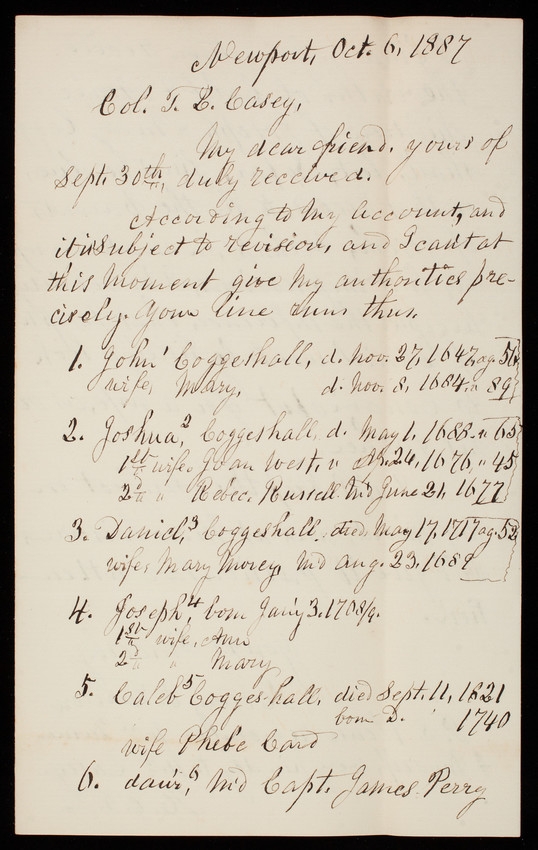 Newport, Oct. 6, 1887
Col. T. L. Casey,
My dear friend, yours of
Sept. 30th, duly received.
According to my account, and
it is subject to revision, and I can't at
this moment give my authorities pre-
cisely. Your line runs thus.
1. John¹ Coggeshall, d. Nov. 27, 1647, ag. 56
wife, Mary, d. Nov. 8, 1684, " 89
2. Joshua,² Coggeshall, d. May 1, 1688 " 65
1st wife Joan West, " Ap. 24, 1676, " 45
2d " Rebec. Russell M'd June 21, 1677
3. Daniel,³ Coggeshall died May 17, 1717 ag. 52
wife, Mary Mowry, M'd Aug. 23, 1689
4. Joseph,⁴ born Jan'y 3. 1708/9.
1st wife, Ann
2d " Mary
5. Caleb⁵ Coggeshall, died Sept. 11, 1821
born D. 1740
wife Phebe Card
6. dau'r,⁶ M'd Capt. James Perry